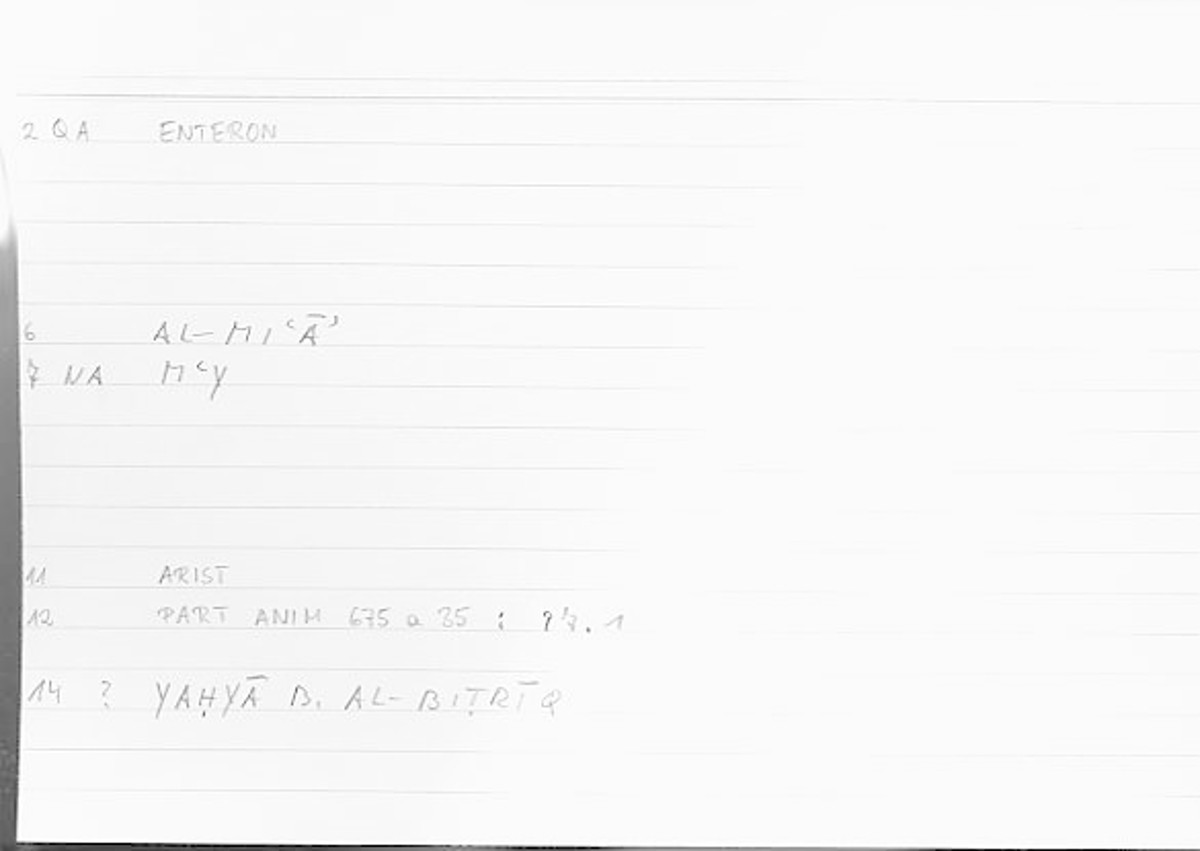 2 QA ENTERON
6 AL-MIʿĀʾ
7 NA MʿY
11 ARIST
12 PART ANIM 675 a 35 : . 1
14 ? YAḤYĀ B. AL-BIṬRĪQ